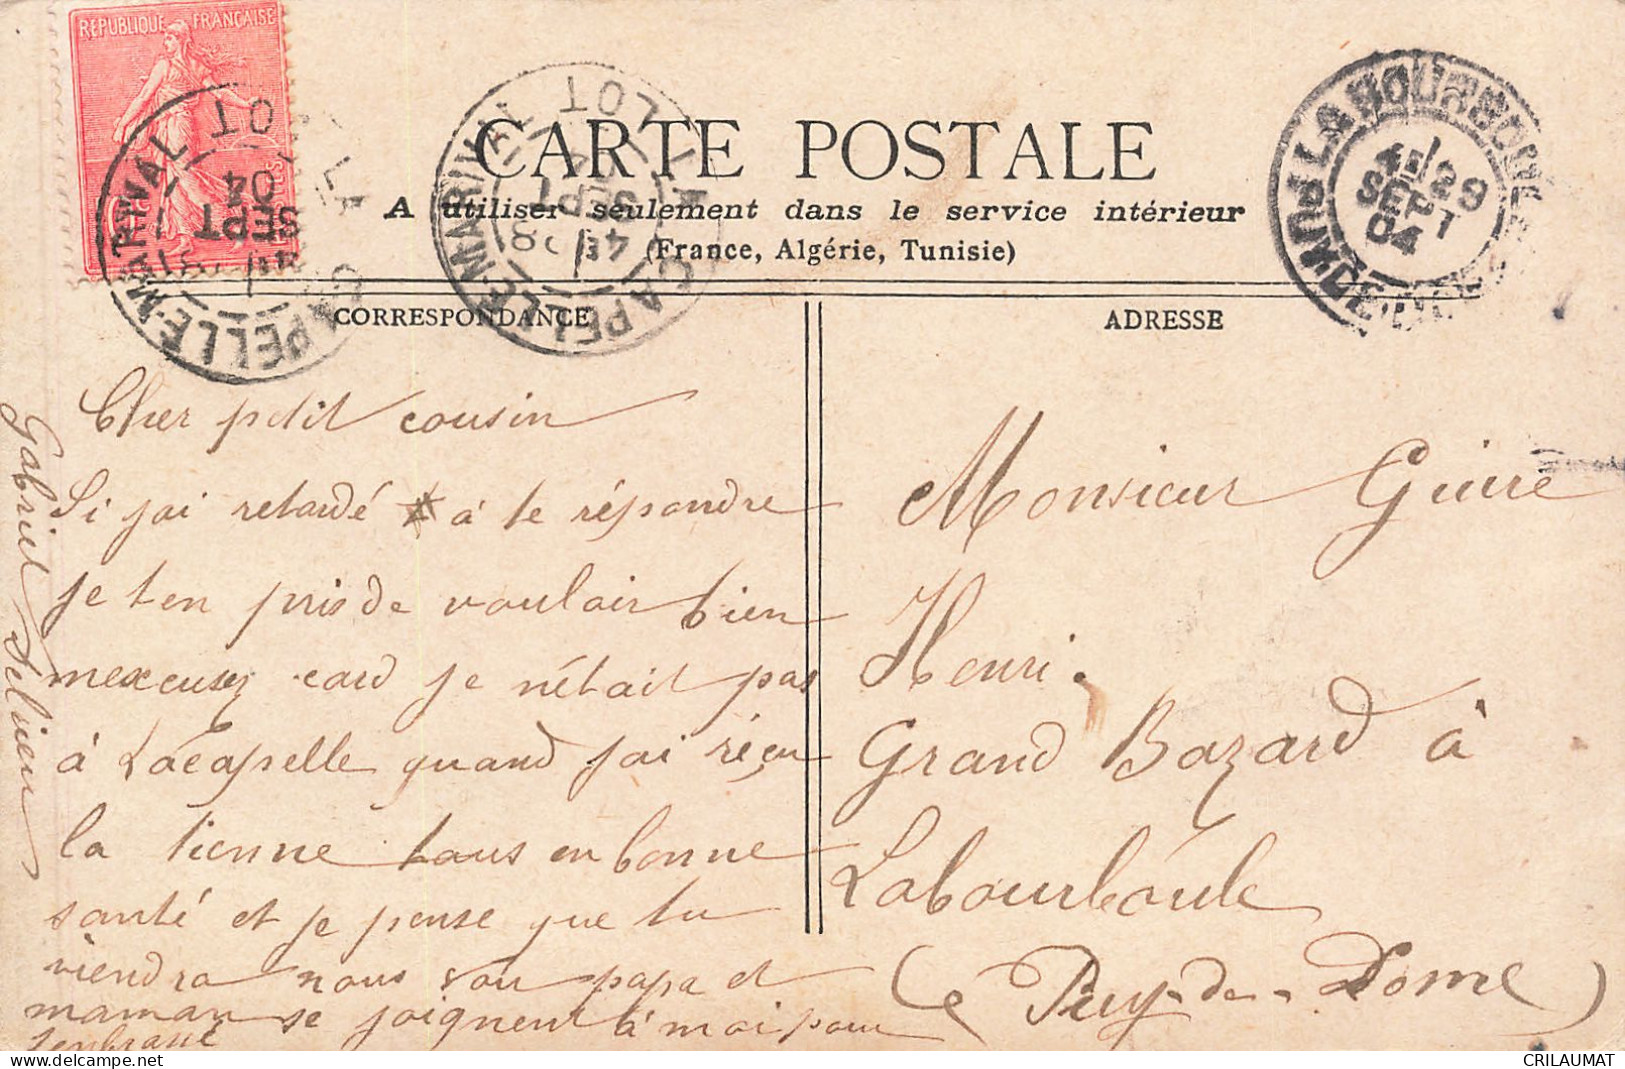 REPUBLIQUE FRANÇAISE
LACAPELLE-MARIVAL LOT
SEPT
04
LACAPELLE-MARIVAL LOT
4E 28
SEPT
LA BOURBOULE
PUY-DE-DOME
4E 29
SEPT
04
CARTE POSTALE
A utiliser seulement dans le service intérieur
(France, Algérie, Tunisie)
CORRESPONDANCE
Cher petit cousin
Si jai retardé à te répondre
je ten pris de vouloir bien
mexcusez card je nétait pas
à Lacapelle quand jai réçu
la tienne tous en bonne
santé et je pense que tu
viendra nous voir papa et
maman se joignent à moi pour
tenbrassé
Gabriel
ADRESSE
Monsieur
Henri.
Grand Bazard à
Labourboule
(Puy-de-Dome)
CRILAUMAT